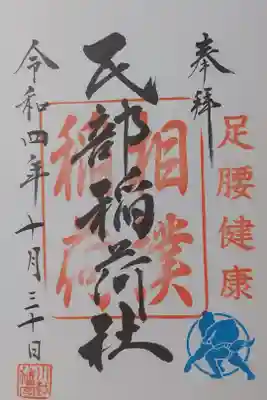 奉拝
足腰健康
民部稲荷社
相撲
稲荷
令和四年十月三十日